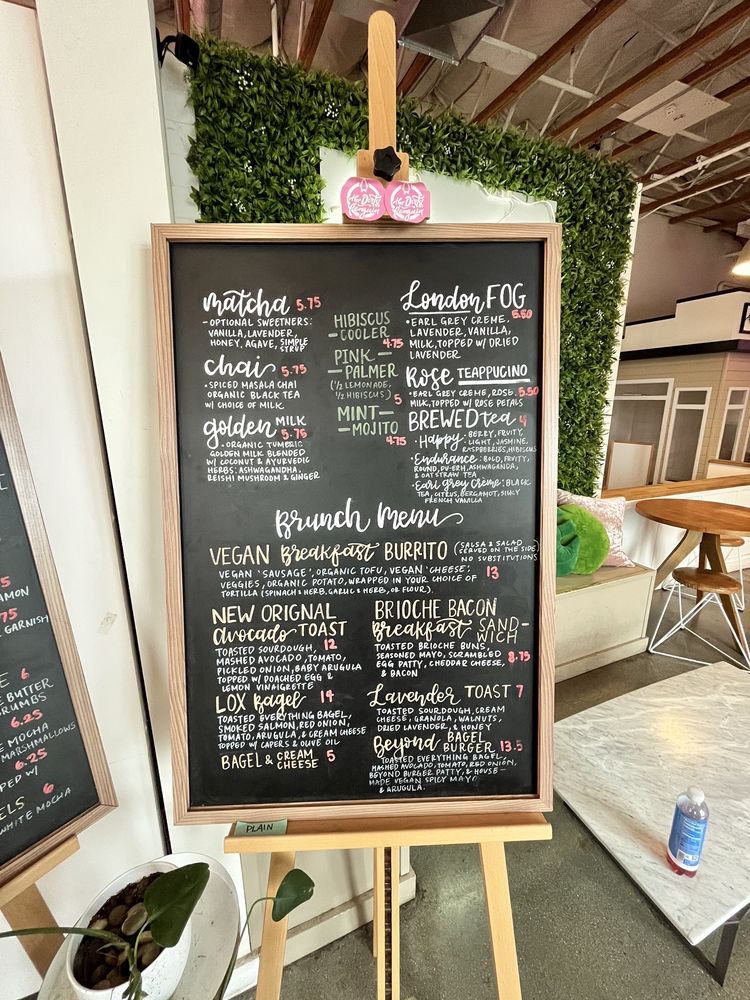 matcha 5.75
-OPTIONAL SWEETNERS:
VANILLA, LAVENDER,
HONEY, AGAVE, SIMPLE
SYRUP
chai 5.75
•SPICED MASALA CHAI
ORGANIC BLACK TEA
W/ CHOICE OF MILK
golden MILK
5.75
•ORGANIC TUMERIC
GOLDEN MILK BLENDED
W/ COCONUT & AYURVEDIC
HERBS: ASHWAGANDHA,
REISHI MUSHROOM & GINGER
HIBISCUS
-COOLER
4.75
PINK-
-PALMER
(1/2 LEMONADE,
1/2 HIBISCUS)
5
MINT-
-MOJITO
4.75
London FOG
5.50
•EARL GREY CREME,
LAVENDER, VANILLA,
MILK, TOPPED W/ DRIED
LAVENDER
Rose TEAPPUCINO
•EARL GREY CREME, ROSE, 5.50
MILK, TOPPED W/ ROSE PETALS
BREWED tea 4
•Happy: BERRY, FRUITY,
LIGHT, JASMINE,
RASPBERRIES, HIBISCUS
•Endurance: BOLD, FRUITY,
ROUND, PU-ERH, ASHWAGANDA,
& OATSTRAW TEA
•Earl Grey Crème: BLACK
TEA, CITRUS, BERGAMOT, SILKY
FRENCH VANILLA
Brunch Menu
VEGAN Breakfast BURRITO (SALSA & SALAD
SERVED ON THE SIDE)
NO SUBSTITUTIONS
VEGAN 'SAUSAGE', ORGANIC TOFU, VEGAN 'CHEESE', 13
VEGGIES, ORGANIC POTATO, WRAPPED IN YOUR CHOICE OF
TORTILLA (SPINACH & HERB, GARLIC & HERB, OR FLOUR).
NEW ORIGNAL
avocado TOAST
TOASTED SOURDOUGH, 12
MASHED AVOCADO, TOMATO,
PICKLED ONION, BABY ARUGULA
TOPPED W/ POACHED EGG &
LEMON VINAIGRETTE
LOX Bagel 14
TOASTED EVERYTHING BAGEL,
SMOKED SALMON, RED ONION,
TOMATO, ARUGULA, & CREAM CHEESE
TOPPED W/ CAPERS & OLIVE OIL
BAGEL & CREAM
CHEESE 5
BRIOCHE BACON
Breakfast SAND-
WICH
TOASTED BRIOCHE BUNS,
SEASONED MAYO, SCRAMBLED
EGG PATTY, CHEDDAR CHEESE, 8.75
& BACON
Lavender TOAST 7
TOASTED SOURDOUGH, CREAM
CHEESE, GRANOLA, WALNUTS,
DRIED LAVENDER, & HONEY
Beyond BAGEL
BURGER 13.5
TOASTED EVERYTHING BAGEL,
MASHED AVOCADO, TOMATO, RED ONION,
BEYOND BURGER PATTY, & HOUSE-
MADE VEGAN SPICY MAYO
& ARUGULA.
PLAIN
AMON
75
GARNISH
E 6
E BUTTER
RUMBS
6.25
E MOCHA
MARSHMALLOWS
6.25
PED W/
ELS 6
WHITE MOCHA